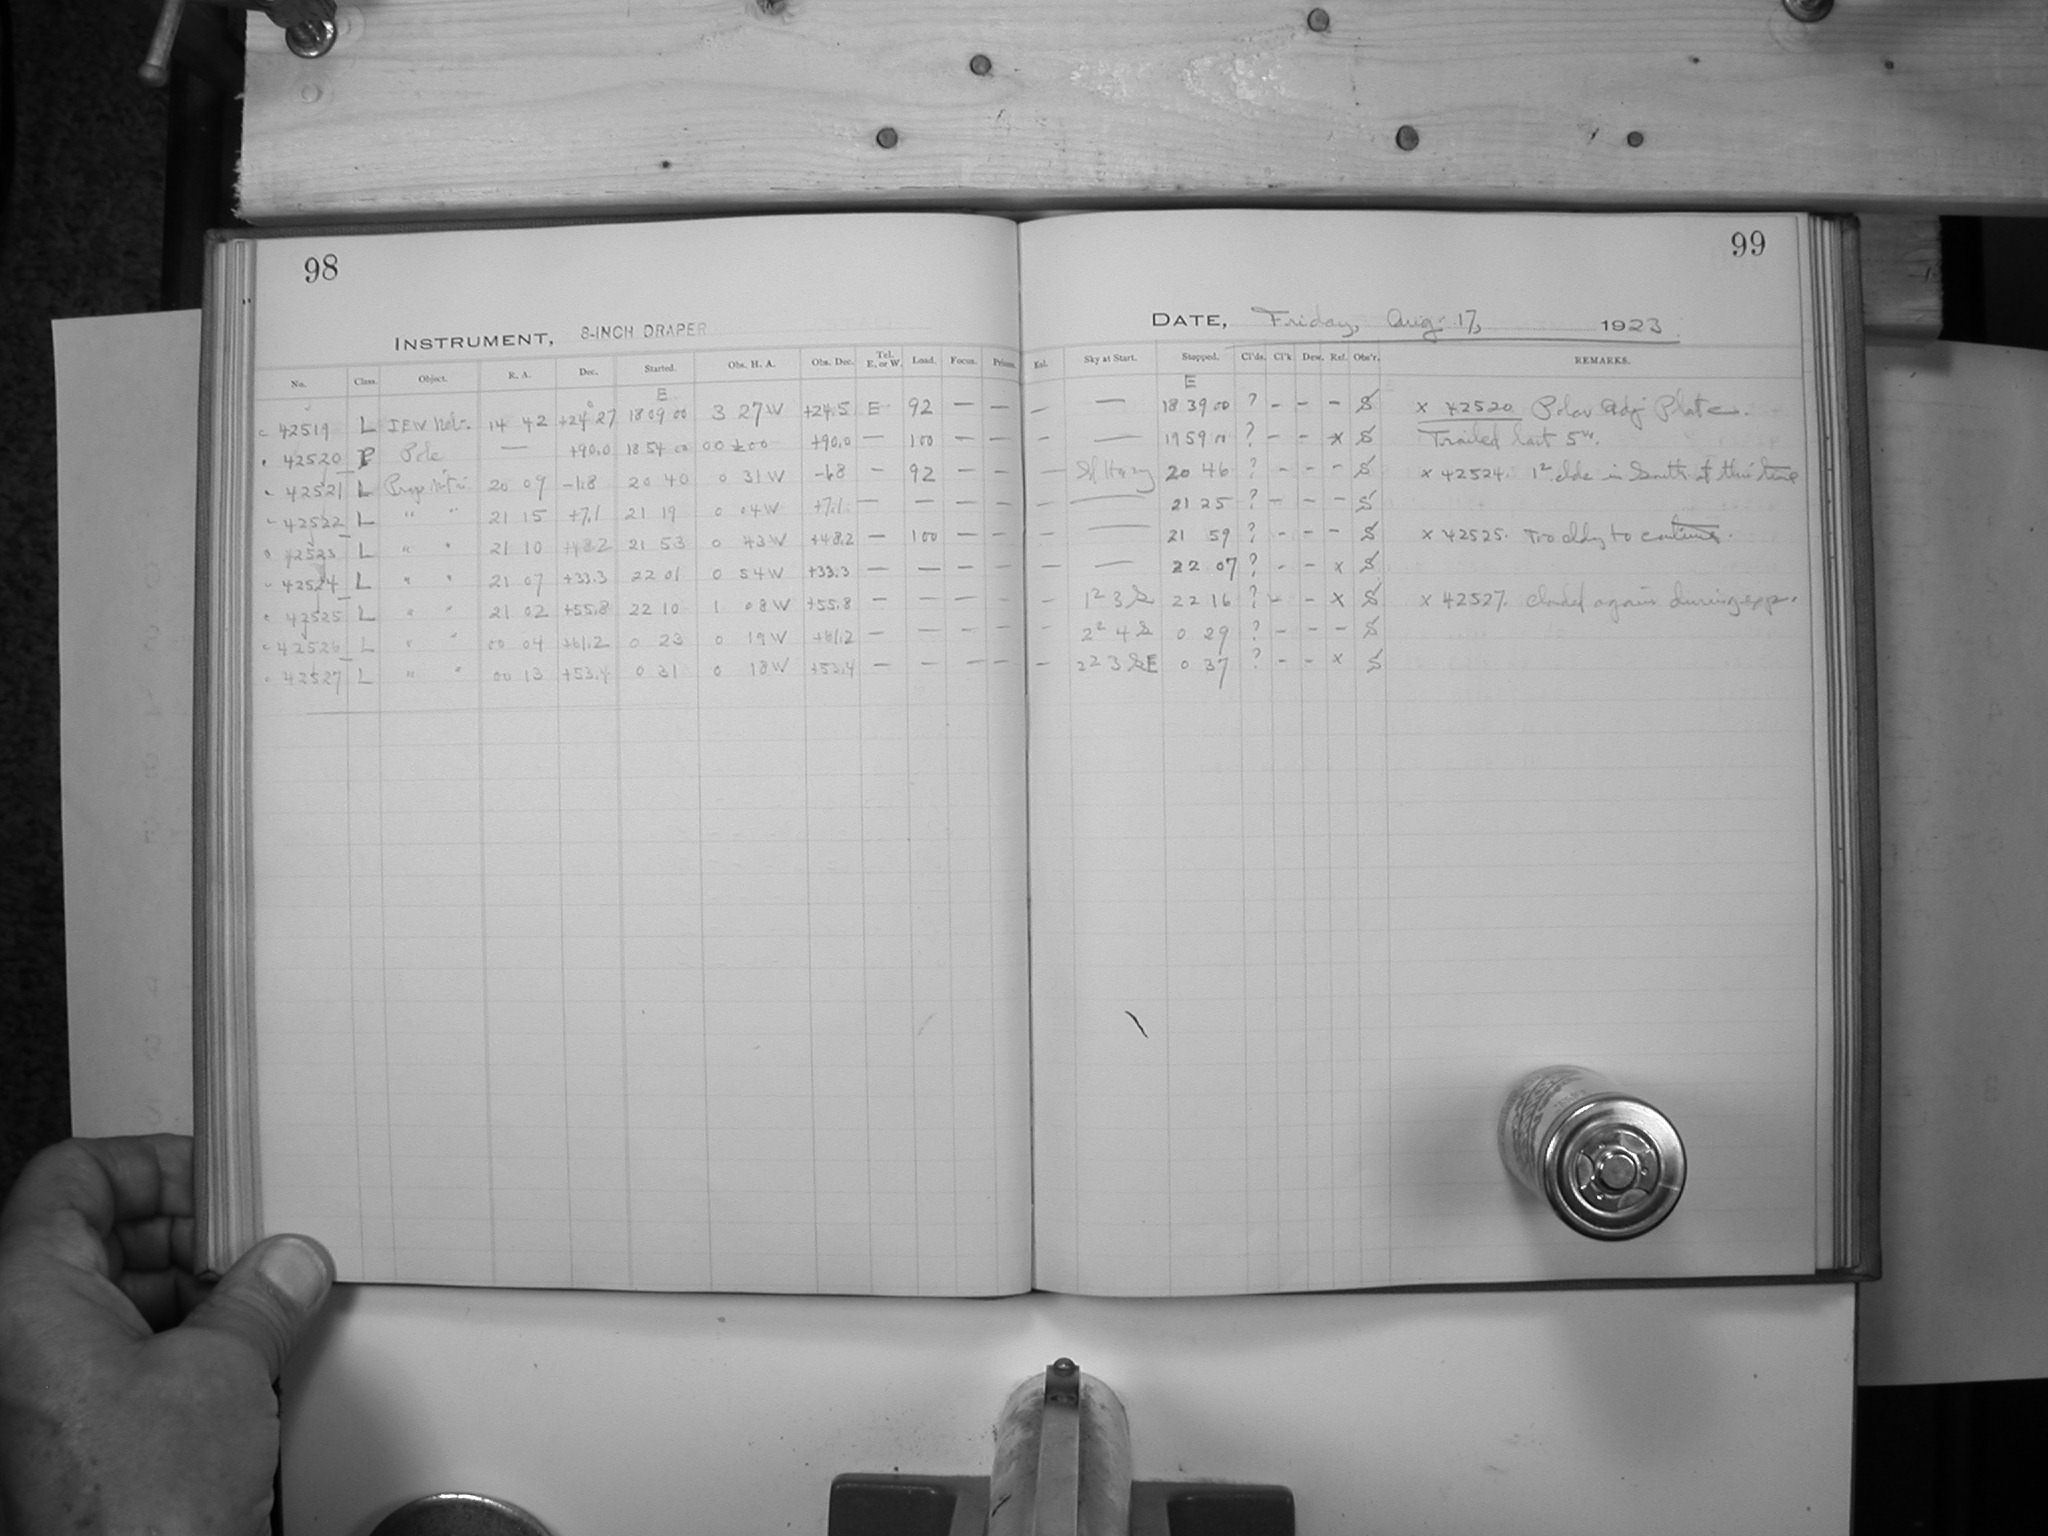 98
99
INSTRUMENT, 8-INCH DRAPER
DATE, Friday, Aug. 17, 1923
No. Class. Object. R. A. Dec. Started. Obs. H. A. Obs. Dec. Tel. E. or W. Load. Focus. Prisms. Exl. Sky at Start. Stopped. Cl'ds. Cl'k Dew. Ref. Obs'r. REMARKS.
E E
42519 L 14 42 +24° 27 18 09 00 3 27 W +24.5 E 92 — — — — 18 39 00 ? - - - S x 42520 Polar Adj Plate.
42520 P Pole — +90.0 18 54 00 00 +90.0 — 100 — — — — 19 59 ? - - x S Trailed last 5m.
42521 L 20 09 -1.8 20 40 0 31 W — 92 — — — Sl Hazy 20 46 ? - - - S x 42524. in South at this time
42522 L " " 21 15 +7.1 21 19 0 04 W +7.1 — — — — — — 21 25 ? - - - S
42523 L " " 21 10 +48.2 21 53 0 43 W +48.2 — 100 — — — — 21 59 ? - - - S x 42525. Too cldy to continue.
42524 L " " 21 07 +33.3 22 01 0 54 W +33.3 — — — — — — 22 07 ? - - x S
42525 L " " 21 02 +55.8 22 10 1 08 W +55.8 — — — — — 22 16 ? - - x S x 42527. Clouded again during exp.
42526 L " " 00 04 +61.2 0 23 0 19 W +61.2 — — — — — 0 29 ? - - - S
42527 L " " 00 13 +53.4 0 31 0 18 W +53.4 — — — — — 0 37 ? - - x S